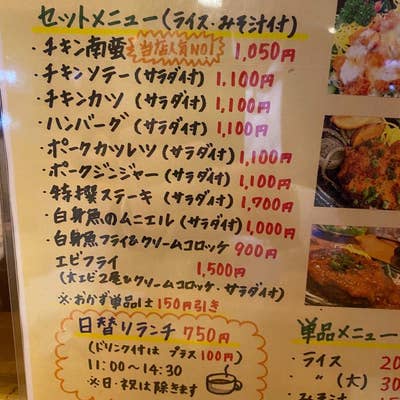 セットメニュー(ライス・みそ汁付)
・チキン南蛮 当店人気NO1 1,050円
・チキンソテー(サラダ付) 1,100円
・チキンカツ(サラダ付) 1,100円
・ハンバーグ(サラダ付) 1,100円
・ポークカツレツ(サラダ付) 1,100円
・ポークジンジャー(サラダ付) 1,100円
・特撰ステーキ(サラダ付) 1,700円
・白身魚のムニエル(サラダ付) 1,000円
・白身魚フライ&クリームコロッケ 900円
エビフライ 1,500円
(大エビ2尾&クリームコロッケ・サラダ付)
※おかず単品は150円引き
日替りランチ 750円
(ドリンク付は プラス100円)
11:00~14:30
※日・祝は除きます
単品メニュー
・ライス 20
・〃(大) 30
・みそ汁 15